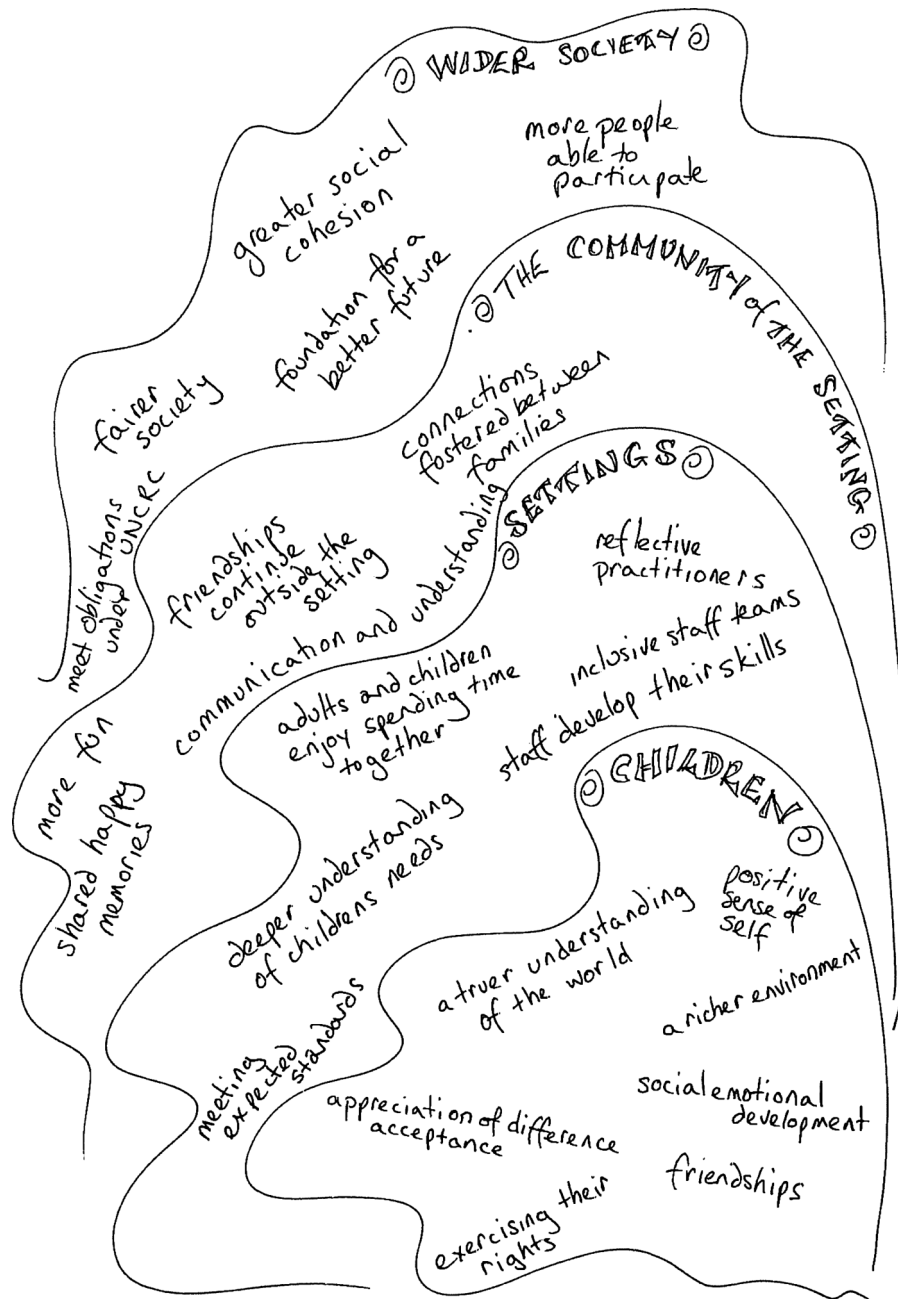 WIDER SOCIETY
more people
able to
participate
greater social
cohesion
foundation for a
better future
fairer
society
meet obligations
under UNCRC
THE COMMUNITY of THE SETTING
connections
fostered between
families
friendships
continue
outside the
setting
communication and understanding
more fun
shared happy
memories
SETTINGS
reflective
practitioners
inclusive staff teams
staff develop their skills
adults and children
enjoy spending time
together
deeper understanding
of childrens needs
meeting
expected
standards
CHILDREN
positive
sense of
self
a truer understanding
of the world
a richer environment
social emotional
development
appreciation of difference
acceptance
friendships
exercising their
rights